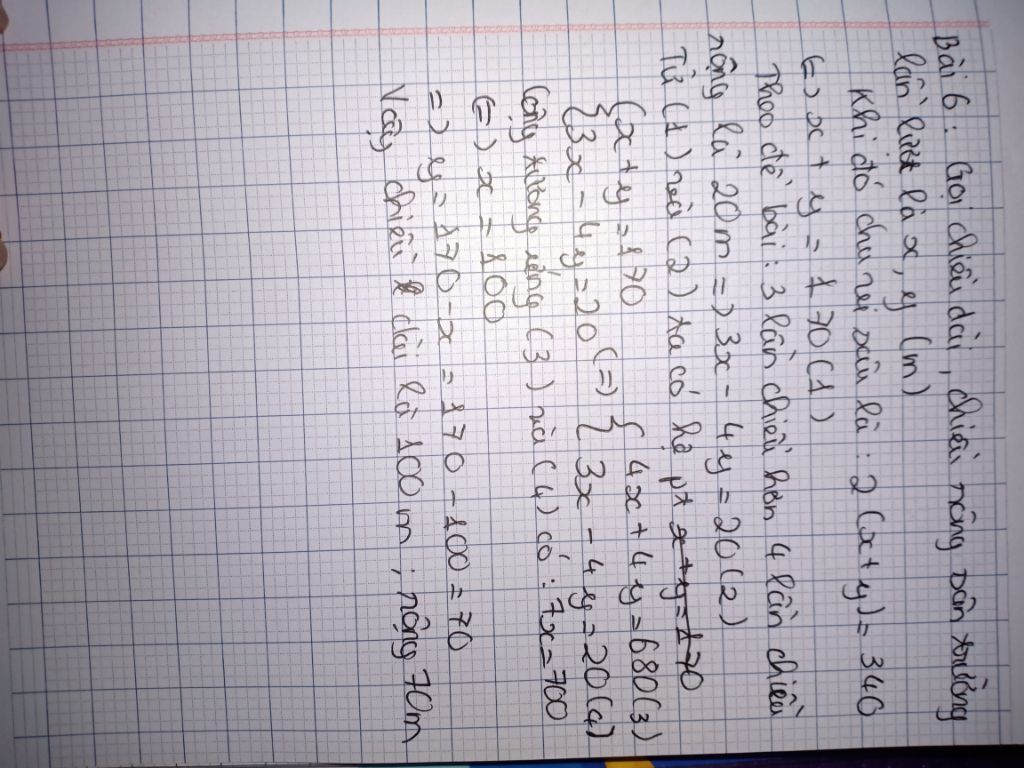 Bài 6: Gọi chiều dài, chiều rộng sân trường
lần lượt là x, y (m)
Khi đó chu vi sân là: 2(x+y) = 340
(=) x + y = 170 (1)
Theo đề bài: 3 lần chiều hơn 4 lần chiều
rộng là 20m =) 3x - 4y = 20 (2)
Từ (1) và (2) ta có hệ pt x+y=170
{x+y=170
{3x-4y=20 (=) { 4x+4y=680(3)
{ 3x-4y=20(4)
Cộng tương ứng (3) và (4) có: 7x=700
(=) x = 100
=) y = 170-x = 170-100=70
Vậy chiều dài là 100m; rộng 70m